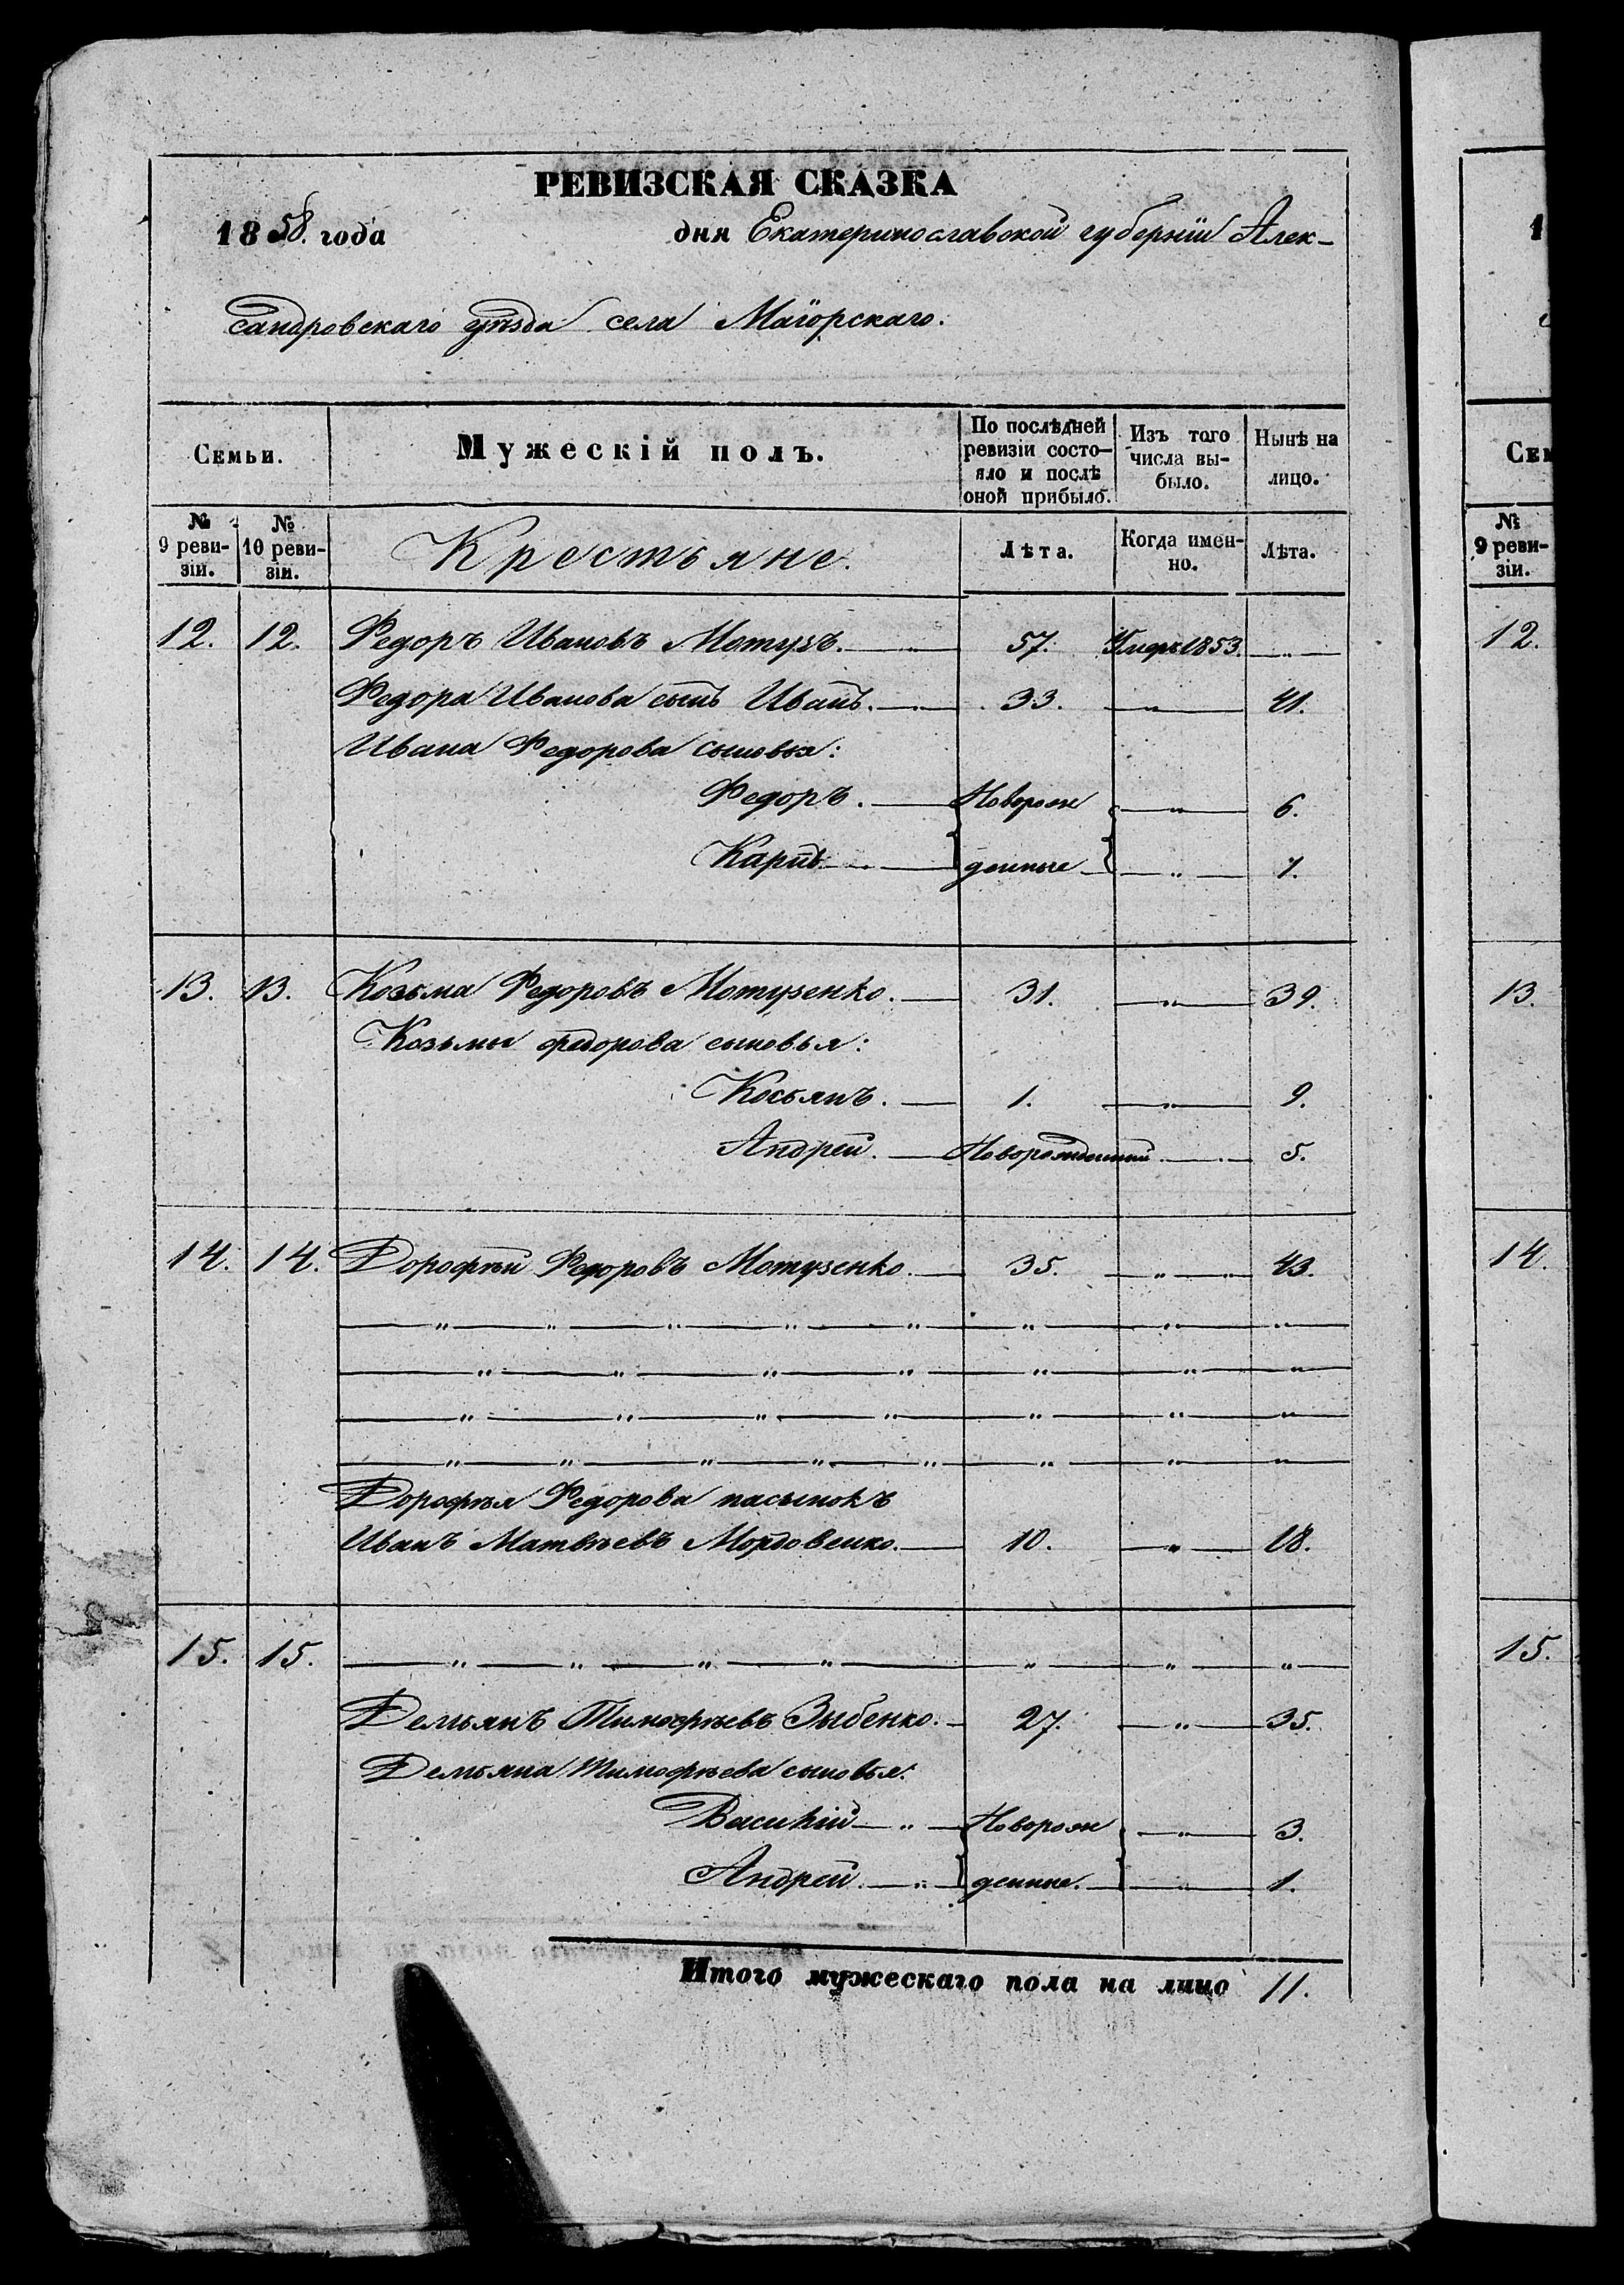 РЕВИЗСКАЯ СКАЗКА
1858. года дня Екатеринославской губернiи Алек-
сандровскаго уѣзда села Маiорскаго.
Семьи. Мужескiй полъ. По послѣдней ревизiи состо-яло и послѣ оной прибыло. Изъ того числа вы-было. Нынѣ на лицо.
№ 9 реви-зiи. № 10 реви-зiи. Крестьяне. Лѣта. Когда имен-но. Лѣта.
12. 12. Федоръ Ивановъ Мотузъ. 57. Умеръ 1853. "
Федора Иванова сынъ Иванъ. 33. " 41.
Ивана Федорова сыновья:
Федоръ. Новорож " 6.
Карпъ. денные " 1.
13. 13. Козьма Федоровъ Мотузенко. 31. " 39.
Козьмы Федорова сыновья:
Косьянъ. 1. " 9.
Андрей. Новорожденный " 5.
14. 14. Дорофѣй Федоровъ Мотузенко. 35. " 43.
" " " " " " " "
" " " " " " "
" " " " " " "
" " " " " " " "
Дорофѣя Федорова пасынокъ
Иванъ Матвѣевъ Мордовенко. 10. " 18.
15. 15. " " " " " " "
Демьянъ Тимофѣевъ Зыбенко. 27. " 35.
Демьяна Тимофѣева сыновья:
Василiй " Новорож " 3.
Андрей. " денные. " 1.
Итого мужескаго пола на лицо 11.
1
Сем
№ 9 реви-зiи.
12.
13.
14.
15.